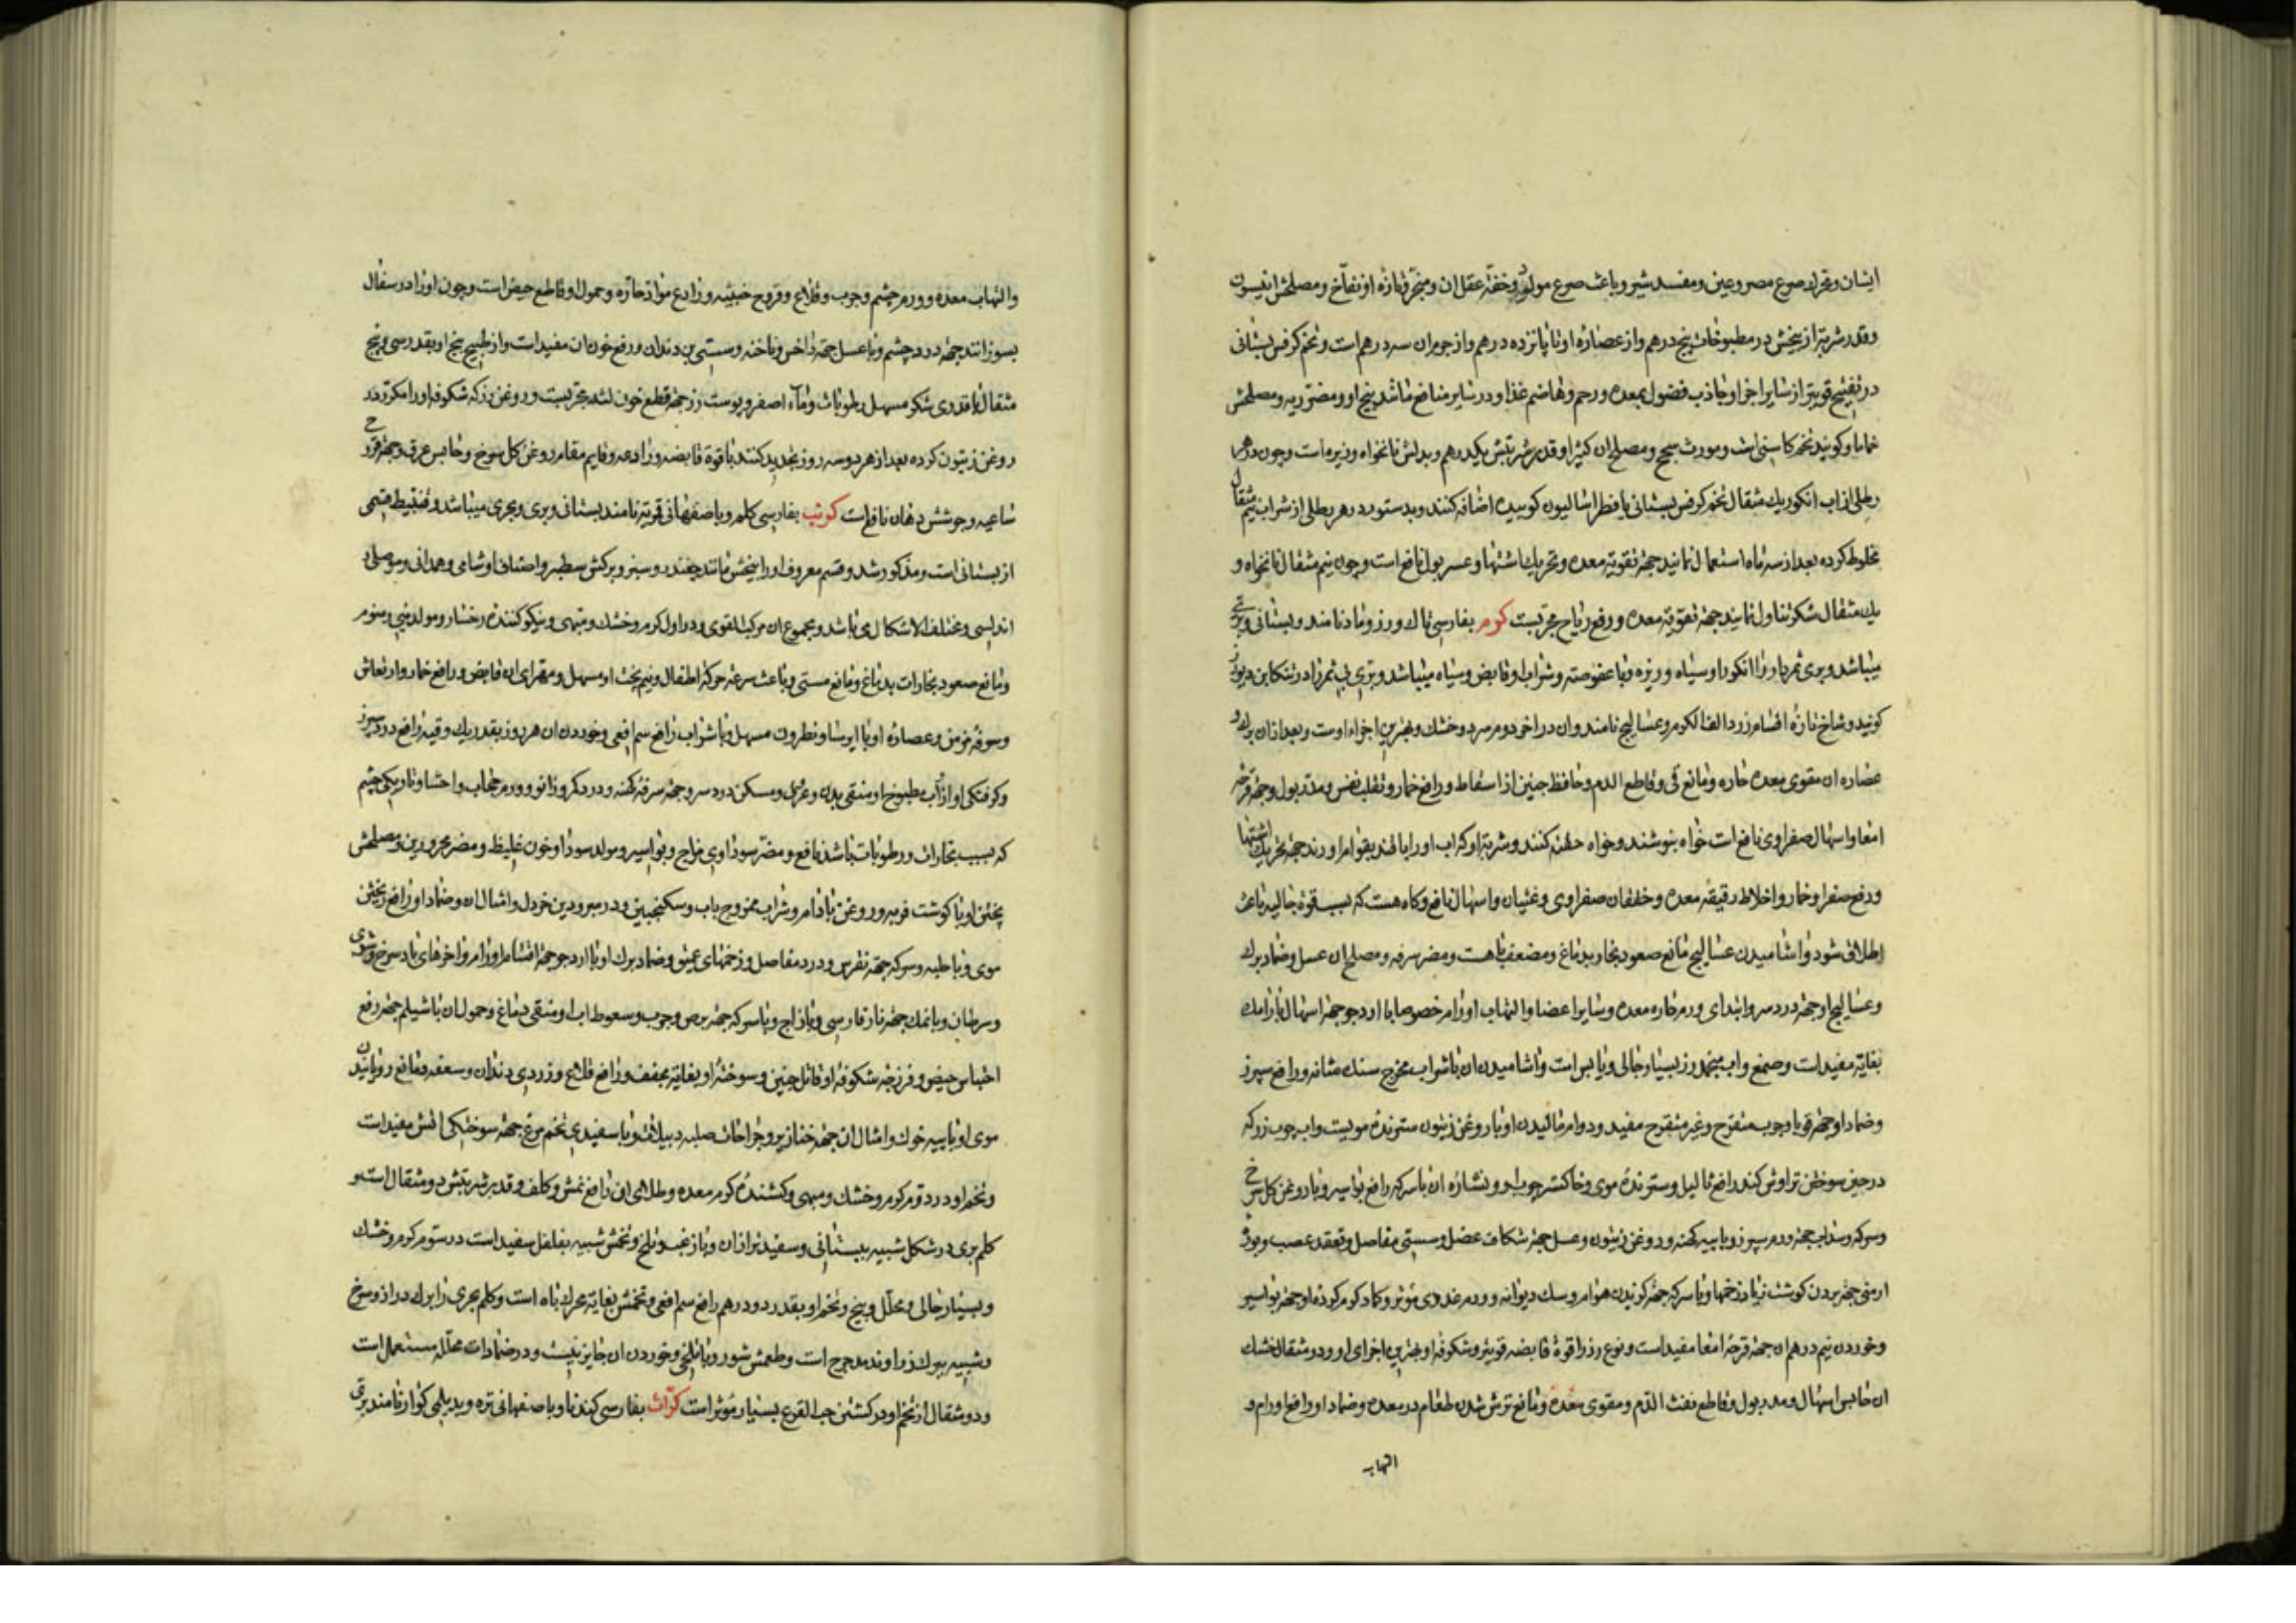 ایشان و محرک صرع مصروعین و مفسد شیر و باعث صرع مولود و خفة عقل ان و مبخر و تازه او نفاخ و مصلحش انیسون
وقدر شربتش از بیخش در مطبوخات پنج درهم و از عصاره او تا پانزده درهم و از جرم ان سه درهم است و تخم کرفس بستانی
در تفتیح قویتر از سایر اجزا و جاذب فضول بمعده و رحم و هاضم غذا و در سایر منافع مانند بیخ او و مضر ریه و مصلحش
حاما و کویند تخم کاسنی است و مورث سحج و مصلح ان کتیرا و قدر شربتش یکدرهم و بدلش نانخواه و زیره است و چون در هر
رطلی از اب انکور یك مثقال تخم کرفس بستانی یا فطراسالیون کوبیده اضافه کنند و بدستور در هر رطلی از شراب نیم مثقال
مخلوط کرده بعد از سه ماه استعمال نمایند جهة تقویة معده و تحریك اشتها و عسر بول نافع است و چون نیم مثقال با نخواه و
یك مثقال شکر تناول نمایند جهة تقویة معده و رفع ریاح مجربست کرم بفارسی تاك و رز و مادنامند و بستانی و بری
میباشد و بری ثمردار را انکور او سیاه و ریزه و با عفوصة و شراب او قابض و سیاه میباشد و بری بی ثمر را در تنکابن دیورز
کویند و شاخ تازه اقسام رز را الف الکرم و عسالیج نامند و ان در اخر دوم سرد و خشك و بهترین اجزاء اوست و بعد از ان برك و
عصاره ان مقوی معده حاره و مانع قی و قاطع الدم و حافظ جنین از اسقاط و رافع خمار و تقلب نفس و مدر بول و جهة قرحه
امعا و اسهال صفراوی نافع است خواه بنوشند و خواه حقنه کنند و شربت او که اب او را با قند بقوام اورند جهة تحریك اشتها
و رفع صفرا و خمار و اخلاط رقیقه معده و خفقان صفراوی و غثیان و اسهال نافع و کاه هست که بسبب قوة جالیه باعث
اطلاق شود و اشامیدن عسالیج مانع صعود بخار بدماغ و مضعف باهست و مضر سرفه و مصلح ان عسل و ضماد برك
و عسالیج او جهة درد سر و ابتدای ورم حاره معده و سایر اعضا و التهاب اورام خصوصا با ارد جو جهة اسهال
بغایة مفید است و صمغ و اب منجمد رز بسیار جالی و یابس است و اشامیدن ان با شراب مخرج سنك مثانه و رافع سپرز
و ضماد او جهة قوبا و جرب متقرح و غیر متقرح مفید و دوام مالیدن او با روغن زیتون سترنده مویست و اب چوب رز که
در حین سوختن تراوش کند رافع ثالیل و سترنده موی و خاکستر چوب او و نشاره ان با سرکه رافع بواسیر و با روغن کل سرخ
و سرکه و سداب جهة ورم سپرز و با پیه کهنه و روغن زیتون و عسل جهة شکاف عضل و سستی مفاصل و تعقد عصب و بوره
ارمنی جهة بردن کوشت زیاد زخمها و با سرکه جهة کزیدن هوام و سك دیوانه و ورم غددی مؤثر و کماد کرم کرده او جهة بواسیر
و خوردن نیم درهم ان جهة قرحه امعا مفید است و نوع رز را قوة قابضه قویتر و شکوفه او بهترین اجزای او و دو مثقال خشك
ان حابس اسهال و مدر بول و قاطع نفث الدم و مقوی معده و مانع ترش شدن طعام در معده و ضماد او رافع اورام و
التهاب
و التهاب معده و ورم چشم و جرب و قلاع و قروح خبیثه و رادع مواد حاره و حمول او قاطع حیض است و چون او را در سفال
بسوزانند جهة درد چشم و با عسل جهة داخس و ناخنه و سستی بن دندان و رفع خون ان مفید است و از طبیخ بیخ او بقدر سی و پنج
مثقال با قدری شکر مسهل رطوبات و ماء اصفر و پوست رز جهة قطع خون لثه مجربست و روغن رز که شکوفه او را مکرر در
روغن زیتون کرده بعد از هر دو سه روز تجدید کنند با قوة قابضه و رادعه و قایم مقام روغن کل سرخ و حابس عرق و جهة قروح
ساعیه و جوشش دهان نافع است کرنب بفارسی کلم و باصفهانی قمریته نامند بستانی و بری و بحری میباشد و قنبیط قسمی
از بستانی است و مذکور شد و قسم معروف او را بیخش مانند چغندر و سبز و برکش سطبر و اصناف او شامی و همدانی و موصلی و
اندلسی و مختلف الاشکال می باشد و مجموع ان مرکب القوی و در اول کرم و خشك و مبهی و نیکو کننده رخسار و مولد منی و منوم
و مانع صعود بخارات بدماغ و مانع مستی و باعث سرعة حرکة اطفال و نیم پخت او مسهل و مهرای ان قابض و رافع خمار و ارتعاش
و سرفه مزمن و عصاره او با ایرسا و نطرون مسهل و با شراب رافع سم افعی و خوردن ان هر روز بقدر یك وقیه رافع درد سپرز
و کرفتکی اواز و اب مطبوخ او منقی بدن و عروق و مسکن درد سر و جهة سرفه کهنه و درد کمر و زانو و ورم حجاب و احشا و تاریکی چشم
که بسبب بخارات و رطوبات باشد نافع و مضر سوداوی مزاج و بواسیر و مولد سودا و خون غلیظ و مضر محرورین و مصلحش
پختن او با کوشت فربه و روغن بادام و شراب ممزوج باب و سکنجبین و در مبرودین خردل و امثال ان و ضماد او رافع ریختن
موی و با حلبه و سرکه جهة نقرس و درد مفاصل و زخمهای عمیق و ضماد برك او با ارد جو جهة اقسام اورام و اخرهای باد سرخ و شری
و سرطان و با نمك جهة نار فارسی و با زاج و با سرکه جهة برص و جرب و سعوط اب او منقی دماغ و حمول ان با شیلم جهة رفع
احتباس حیض و فرزجه شکوفه او قاتل جنین و سوخته او بغایة مجفف و رافع قلاع و زردی دندان و سعفه و مانع رویانیدن
موی او با پیه خوك و امثال ان جهة خنازیر و جراحات صلبه و دبیلات و با سفیدی تخم مرغ جهة سوختکی اتش مفید است
و تخم او در دوم کرم و خشك و مبهی و کشنده کرم معده و طلای ان رافع نمش و کلف و قدر شربتش دو مثقال است و
کلم بری در شکل شبیه ببستانی و سفیدتر از ان و با زغب و تلخ و تخمش شبیه بفلفل سفید است در سوم کرم و خشك
و بسیار جالی و محلل و بیخ و تخم او بقدر دو درهم رافع سم افعی و تخمش بغایة محرك باه است و کلم بحری را برك دراز و سرخ
و شبیه ببرك زراوند مدحرج است و طعمش شور و با تلخی و خوردن ان جایز نیست و در ضمادات محلله مستعمل است
و دو مثقال از تخم او در کشتن حب القرع بسیار مؤثر است کراث بفارسی کندنا و باصفهانی تره و بدیلمی کوار نامند بری